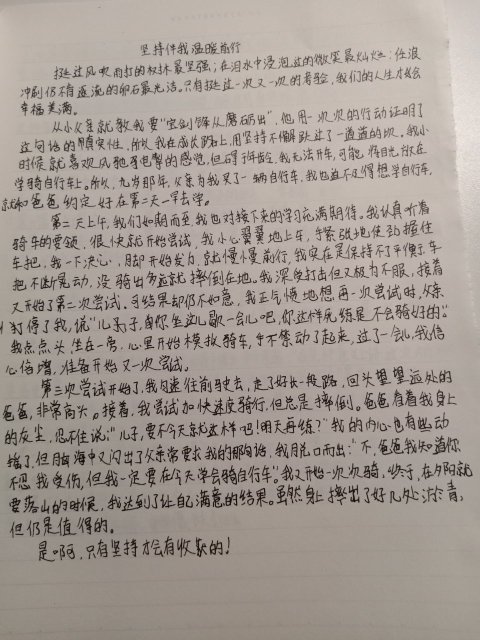 坚持伴我温暖前行
挺过风吹雨打的树木最坚强；在泪水中浸泡过的微笑最灿烂；任浪
冲刷仍不随逐流的卵石最光洁。只有挺过一次又一次的考验，我们的人生才会
幸福美满。
从小父亲就教我要“宝剑锋从磨砺出”，他用一次次的行动证明了
这句话的真实性。所以我在成长路上，用坚持不懈跃过了一道道的坎。我小
时候就喜欢风驰电掣的感觉，但碍于年龄，我无法开车，可能将目光放在
学骑自行车上。所以，九岁那年，父亲为我买了一辆自行车，我也迫不及待想学自行车，
就和爸爸约定好在第二天一早去学。
第二天上午，我们如期而至，我也对接下来的学习充满期待。我认真听着
骑车的要领，很快就开始尝试，我小心翼翼地上车，手紧张地使劲握住
车把，我一下决心，脚开始发力，就慢慢前行，我实在是保持不了平衡，车
把不断晃动，没骑出多远就摔倒在地。我深受打击但又极为不服，接着
又开始了第二次尝试，可结果却仍不如意，我正气愤地想再一次尝试时，父亲
叫停了我，说“儿子，向你坐这儿歇一会儿吧，你这样死练是不会骑好的。”
我点点头，坐在一旁，心里开始模拟骑车，手不禁动了起来，过了一会儿，我信
心倍增，准备开始又一次尝试。
第三次尝试开始了，我匀速往前驶去，走了好长一段路，回头望望远处的
爸爸，非常高兴。接着，我尝试加快速度骑行，但总是摔倒。爸爸看着我身上
的灰尘，忍不住说：“儿子，要不今天就这样吧！明天再练？”我的内心也有些动
摇了，但脑海中又闪出了父亲常要求我的那句话，我脱口而出：“不，爸爸我知道你
不忍我受伤，但我一定要在今天学会骑自行车。”我又开始一次次骑，终于，在夕阳就
要落山的时候，我达到了让自己满意的结果。虽然身上摔出了好几处淤青，
但仍是值得的。
是啊，只有坚持才会有收获的！